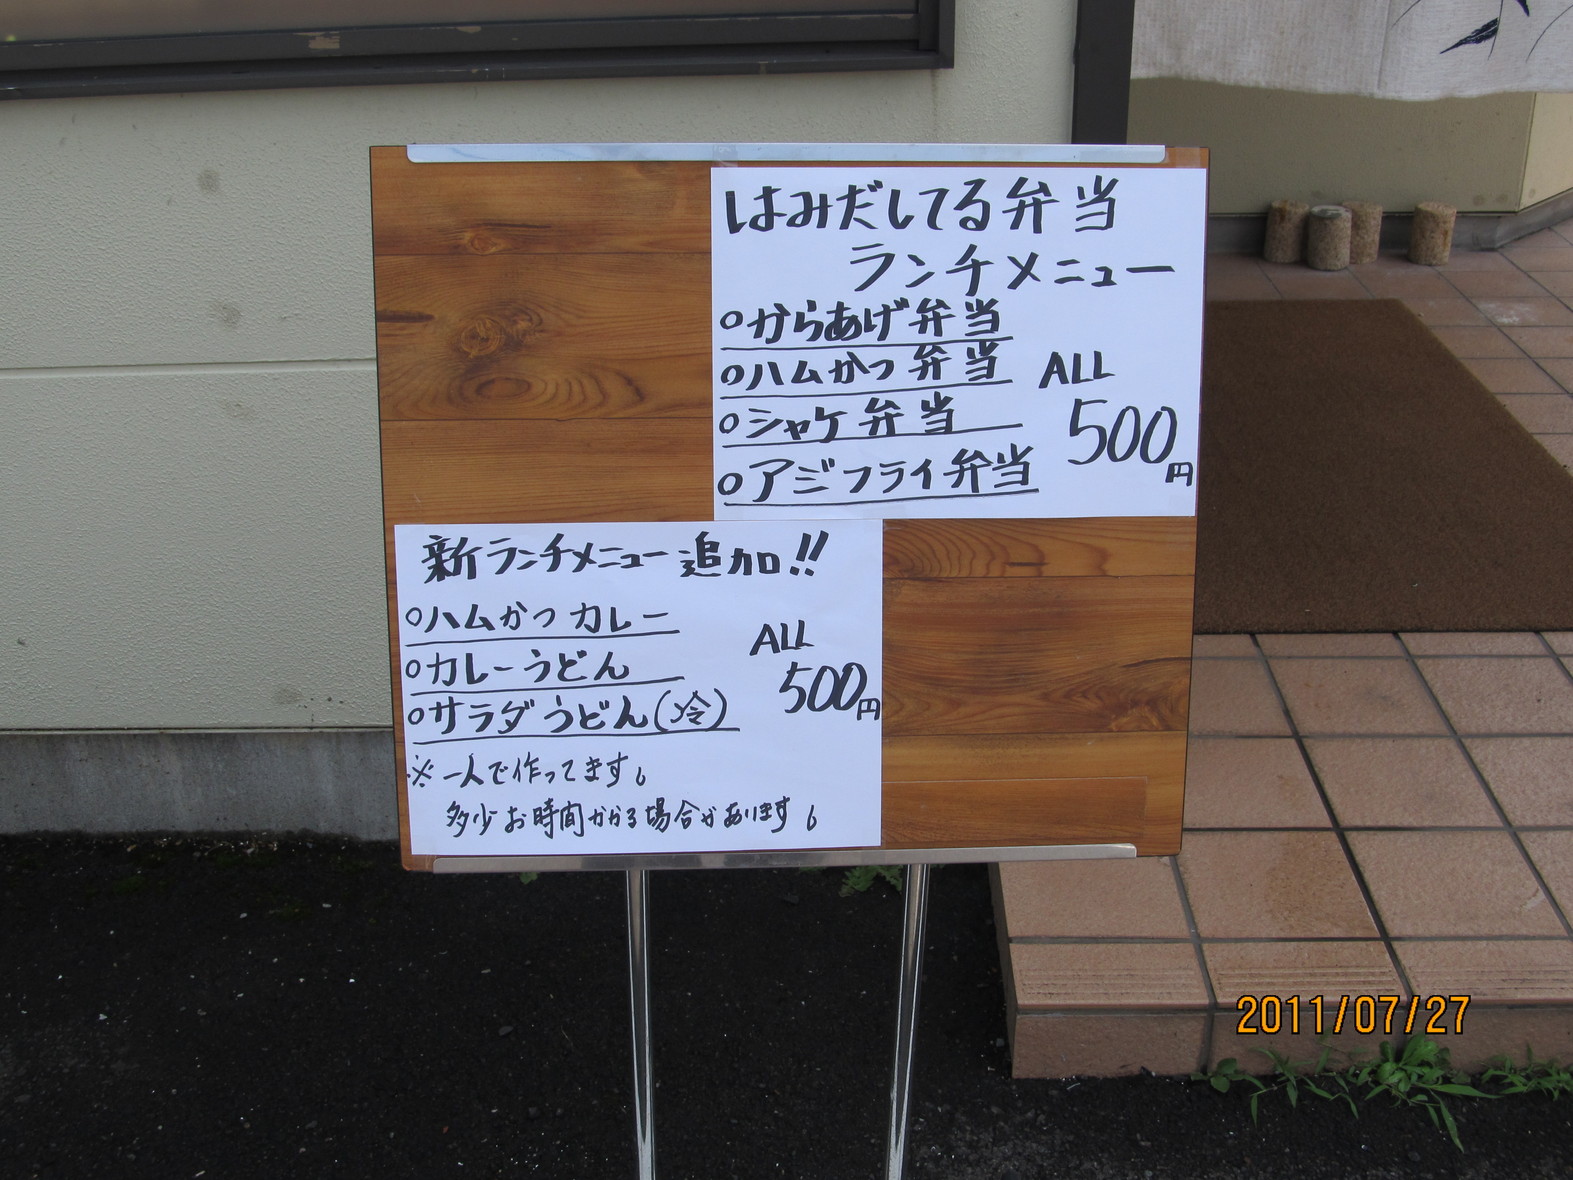 はみだしてる弁当
ランチメニュー
○からあげ弁当
○ハムかつ弁当
○シャケ弁当
○アジフライ弁当
ALL
500円
新ランチメニュー追加!!
○ハムかつカレー
○カレーうどん
○サラダうどん(冷)
ALL
500円
※一人で作ってます。
多少お時間かかる場合があります。
2011/07/27